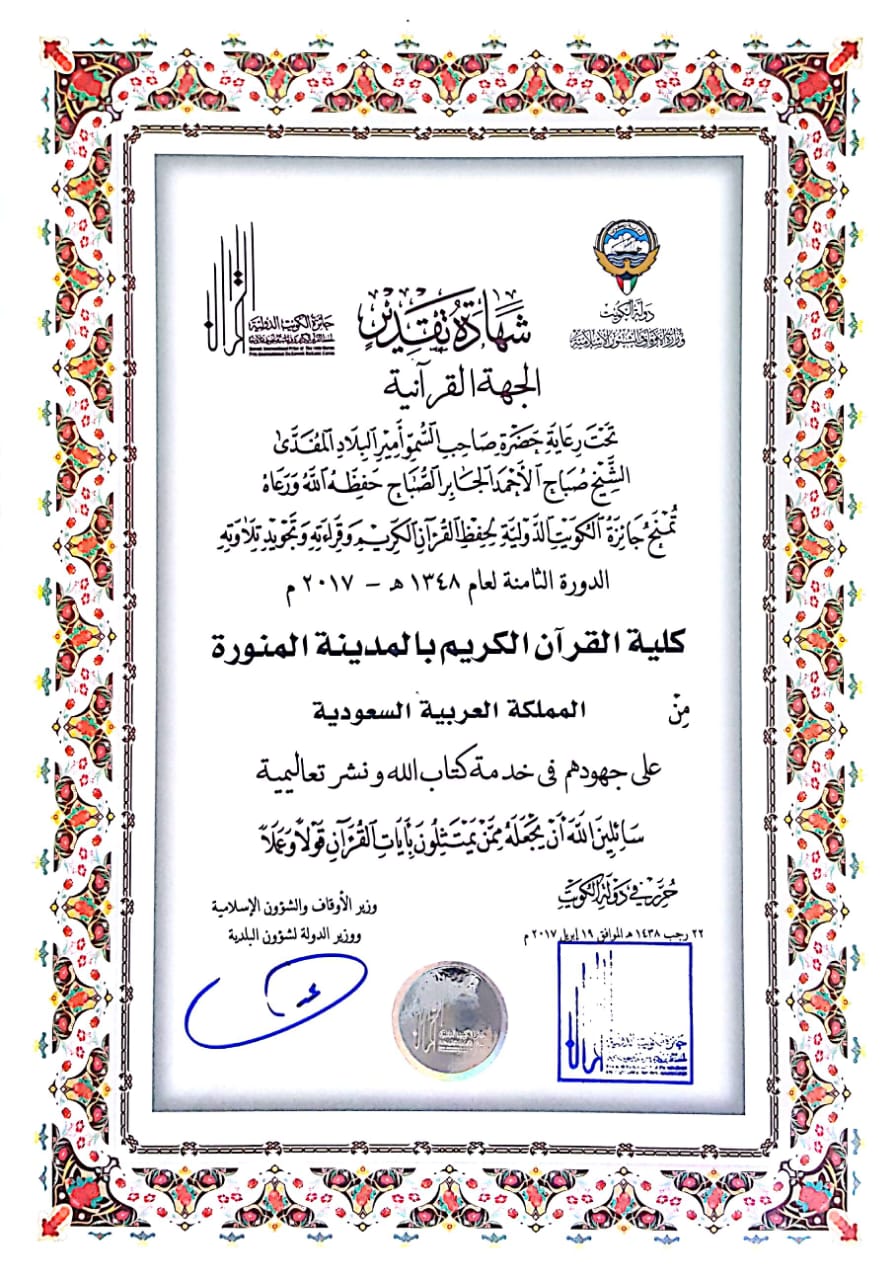 دولة الكويت
وزارة الأوقاف والشئون الإسلامية
جائزة الكويت الدولية
شَهَادَةُ تَقْدِيْرٍ
الجهة القرآنية
تَحْتَ رِعَايَةِ حَضْرَةِ صَاحِبِ السُّمُوِّ أَمِيْرِ الْبِلَادِ الْمُفَدَّىٰ
الشَّيْخِ صُبَاحِ الْأَحْمَدِ الْجَابِرِ الصُّبَاحِ حَفِظَهُ اللَّهُ وَرَعَاهُ
تُمْنَحُ جَائِزَةُ الْكُوَيْتِ الدَّوْلِيَّةِ لِحِفْظِ الْقُرْآنِ الْكَرِيْمِ وَقِرَاءَتِهِ وَتَجْوِيْدِ تِلَاوَتِهِ
الدورة الثامنة لعام ١٣٤٨ هـ - ٢٠١٧ م
كلية القرآن الكريم بالمدينة المنورة
مِنْ المملكة العربية السعودية
على جهودهم في خدمة كتاب الله ونشر تعاليمية
سَائِلِيْنَ اللَّهَ أَنْ يَجْعَلَهُ مِمَّنْ يَمْتَثِلُوْنَ بِآيَاتِ الْقُرْآنِ قَوْلًا وَعَمَلًا
حُرِّرَ فِي دَوْلَةِ الْكُوَيْتِ
٢٢ رجب ١٤٣٨ هـ الموافق ١٩ إبريل ٢٠١٧ م
وزير الأوقاف والشؤون الإسلامية
ووزير الدولة لشؤون البلدية